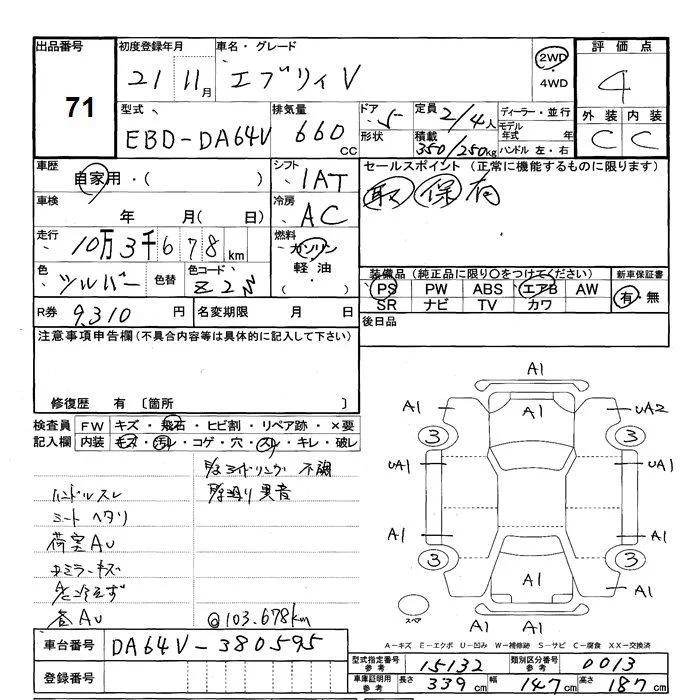 出品番号 初度登録年月 車名・グレード 評価点
71
21 11月 エブリィV 2WD 4WD 4
型式 排気量 ドア 定員 ディーラー・並行 外装 内装
EBD-DA64V 660 CC 5 2/4人 モデル年式 年 C C
形状 積載 350/250kg ハンドル 左・右
車歴 シフト セールスポイント (正常に機能するものに限ります)
自家用・( ) 1AT 取 保 有
車検 冷房
年 月(日) AC
走行 燃料
10万3千678km ガソリン 軽油・( )
色 色替 色コード 装備品(純正品に限り○をつけてください) 新車保証書
シルバー Z2S PS PW ABS エアB AW 有・無
SR ナビ TV カワ
R券 9,310円 名変期限 月 日 後日品
注意事項申告欄(不具合内容等は具体的に記入して下さい)
修復歴 有 〔箇所 〕
検査員 FW キズ・飛石・ヒビ割・リペア跡・×要
記入欄 内装 キズ・汚レ・コゲ・穴・スレ・キレ・破レ
不調
異音
ハンドルスレ
シートヘタリ
荷室AU
AU
@103,678km
A1
A1 A1 UA2
3 3
UA1 UA1
A1 A1
3 3
A1
A1 A1
スペア
A-キズ E-エクボ U-凹み W-補修跡 S-サビ C-腐食 XX-交換済
車台番号 DA64V-380595
登録番号
型式指定番号 参考 15132 類別区分番号 参考 0013
車庫証明用 参考 長さ 339cm 幅 147cm 高さ 187cm